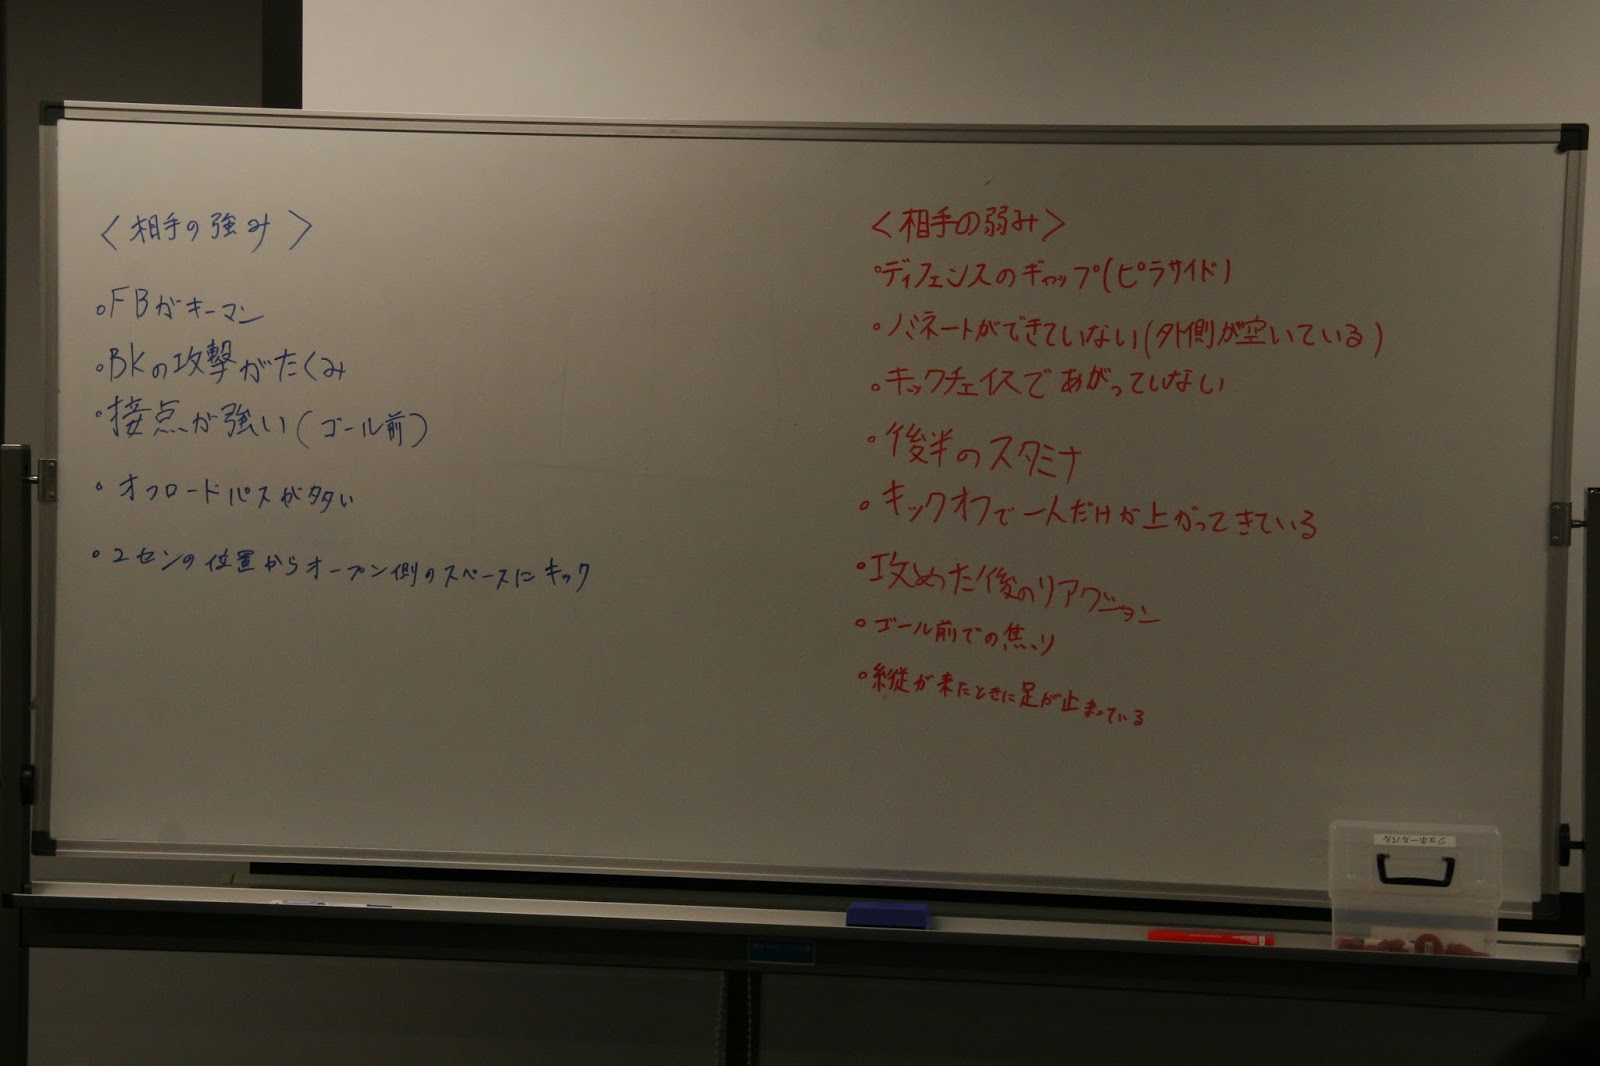 〈相手の強み〉
・FBがキーマン
・BKの攻撃がたくみ
・接点が強い(ゴール前)
・オフロードパスが多い
・2センの位置からオープン側のスペースにキック
〈相手の弱み〉
・ディフェンスのギャップ(ピラサイド)
・ノミネートができていない(外側が空いている)
・キックチェイスであがっていない
・後半のスタミナ
・キックオフで一人だけが上がってきている
・攻めた後のリアクション
・ゴール前での焦り
・縦が来たときに足が止まっている
ジョホールバル